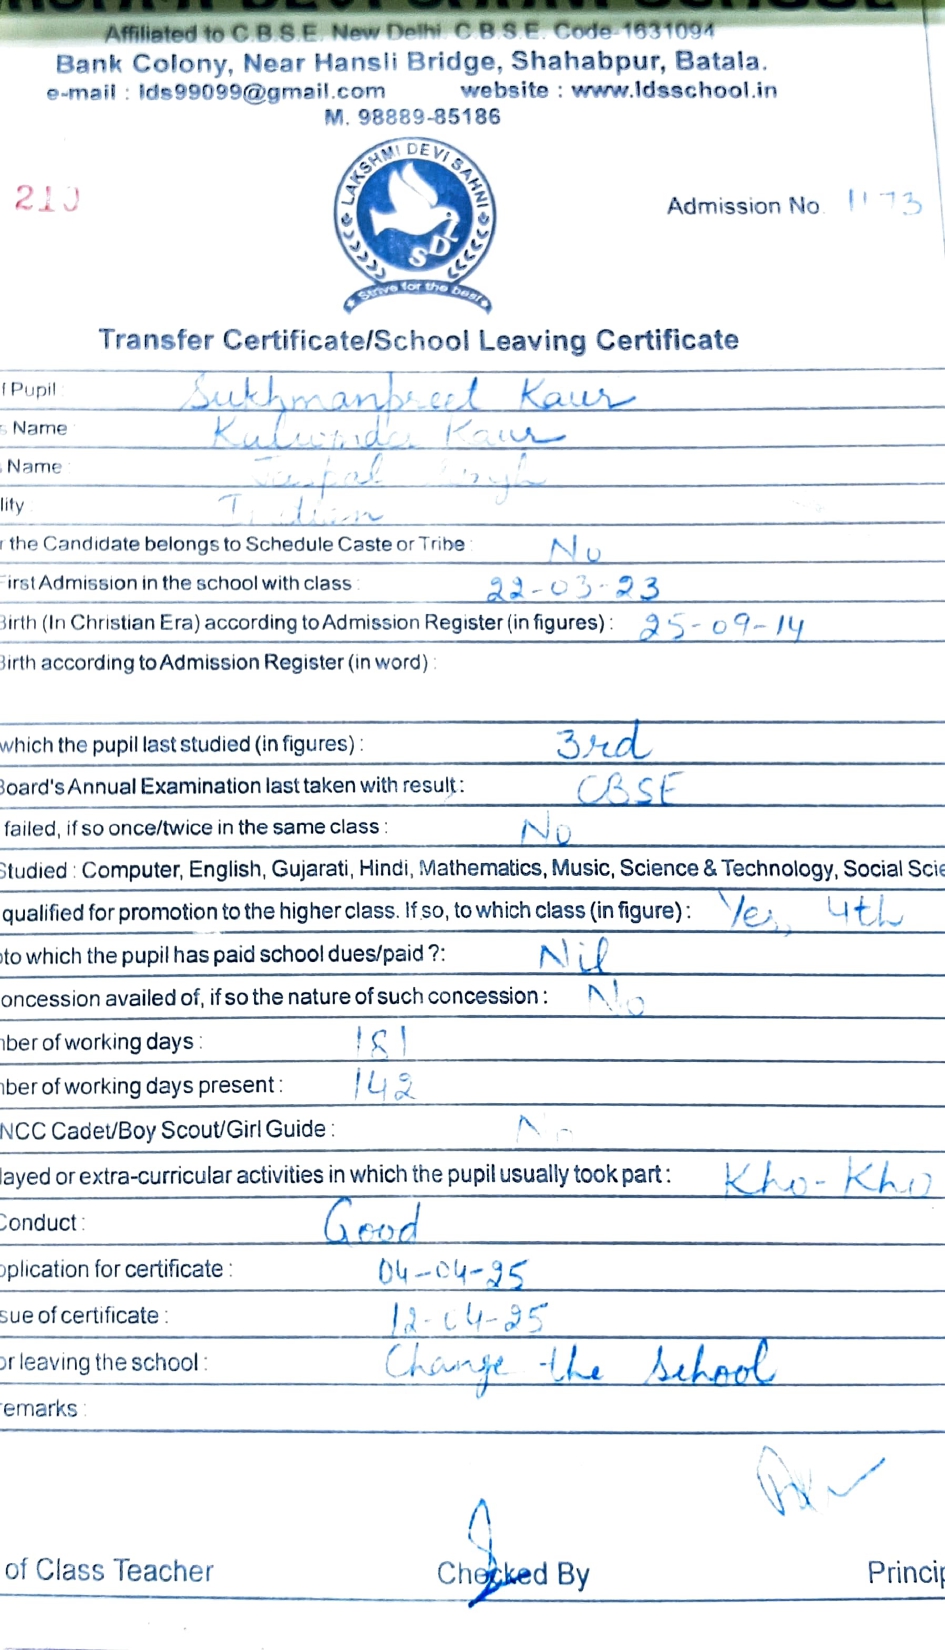 Affiliated to C.B.S.E. New Delhi. C.B.S.E. Code-1631094
Bank Colony, Near Hansli Bridge, Shahabpur, Batala.
e-mail : lds99099@gmail.com website : www.ldsschool.in
M. 98889-85186
210 Admission No. 1173
LAKSHMI DEVI SAHNI
SDL
Strive for the best
Transfer Certificate/School Leaving Certificate
f Pupil : Sukhmanpreet Kaur
s Name Kulwinder Kaur
Name : Singh
lity Indian
r the Candidate belongs to Schedule Caste or Tribe : No
First Admission in the school with class : 22-03-23
Birth (In Christian Era) according to Admission Register (in figures) : 25-09-14
Birth according to Admission Register (in word) :
which the pupil last studied (in figures) : 3rd
Board's Annual Examination last taken with result : CBSE
failed, if so once/twice in the same class : No
Studied : Computer, English, Gujarati, Hindi, Mathematics, Music, Science & Technology, Social Scie
qualified for promotion to the higher class. If so, to which class (in figure) : Yes, 4th
to which the pupil has paid school dues/paid ?: Nil
oncession availed of, if so the nature of such concession : No
ber of working days : 181
ber of working days present : 142
NCC Cadet/Boy Scout/Girl Guide : No
layed or extra-curricular activities in which the pupil usually took part : Kho-Kho
Conduct : Good
pplication for certificate : 04-04-25
sue of certificate : 12-04-25
or leaving the school : Change the school
emarks :
of Class Teacher Checked By Princip